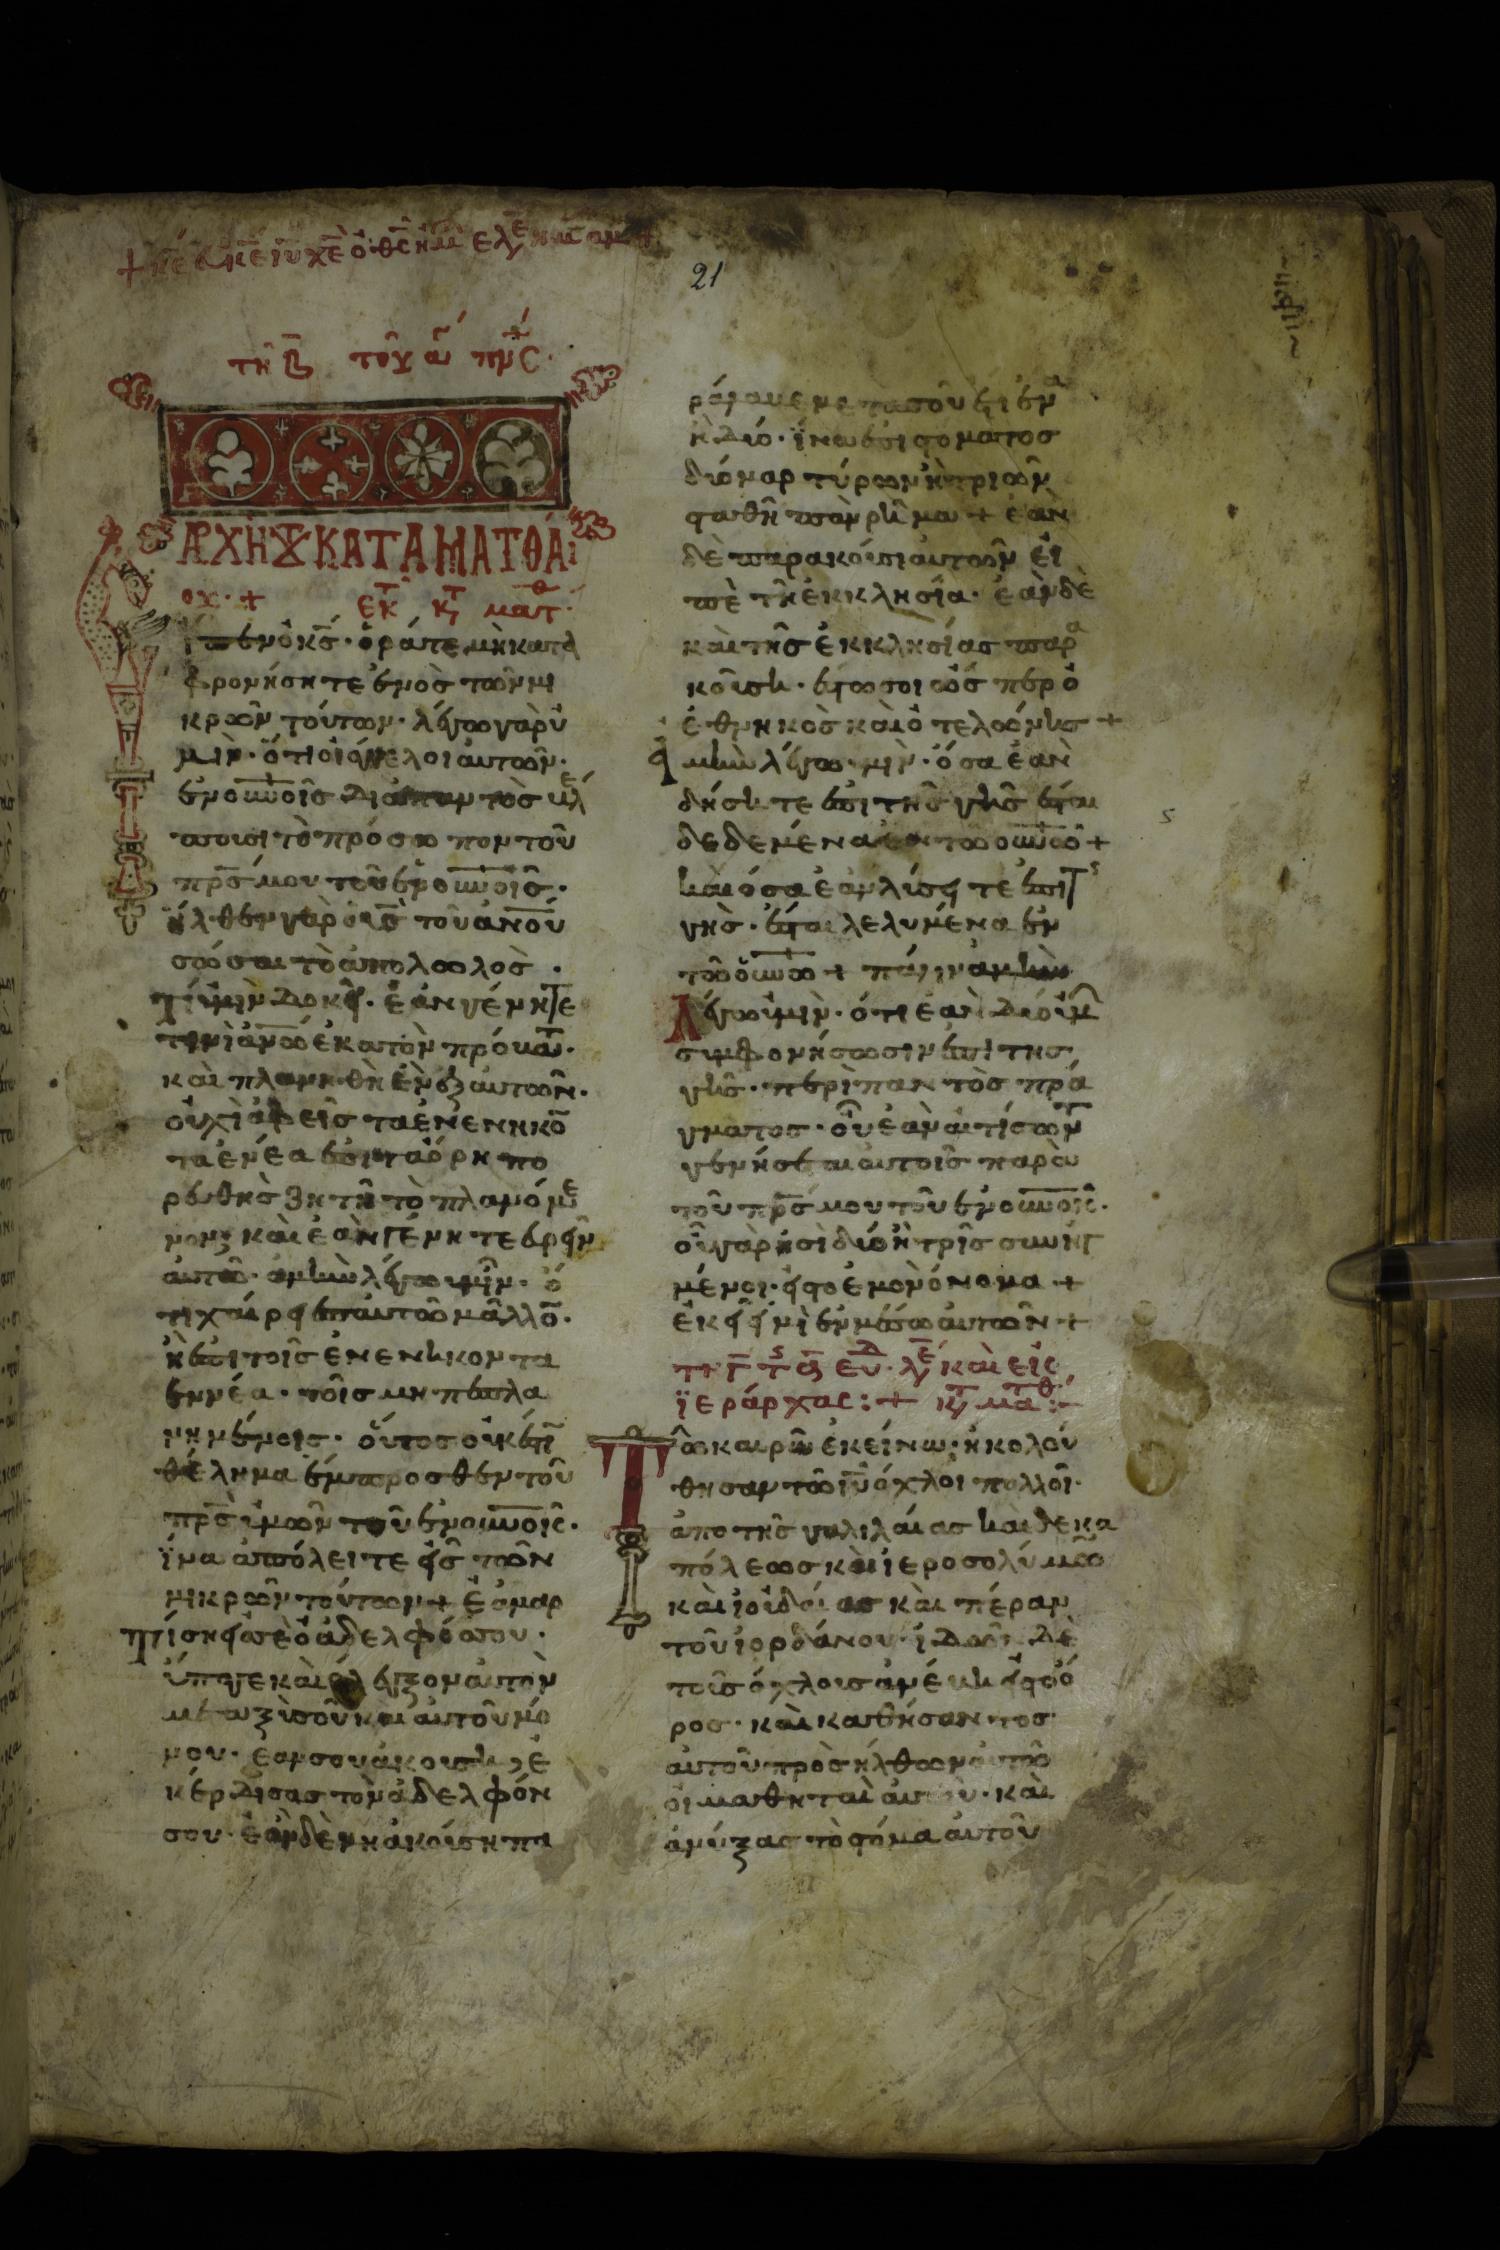 + κε κε ιυ χε ο θς ημ ελε
21
τη Β του αγ πνς
ΑΡΧΗ ΚΑΤΑ ΜΑΤΘΑΙ
ου · + εκ κτ ματθ
ιπεν ὁ κς · ὁράτε μὴ κατα
φρονήσητε ἑνὸς τῶν μι
κρῶν τούτων · λέγω γὰρ ὑ
μὶν · ὅτι οἱ ἄγγελοι αὐτῶν ·
ἐν οὐνοῖς διαπαντὸς βλέ
πουσι τὸ πρόσωπον τοῦ
πρς μου τοῦ ἐν οὐνοῖς ·
ἦλθεν γὰρ ὁ υς τοῦ ανου
σῶσαι τὸ ἀπολωλὸς ·
Τί ὑμὶν δοκεῖ · ἐὰν γένητε
τινὶ ανω ἑκατὸν πρόβατ ·
καὶ πλανηθὴ ἓν ἐξ αὐτῶν ·
οὐχὶ ἀφεὶς τα ἐνενηκο
τα ενέα ἐπι τα ὄρη πο
ρευθὴς ζητῆ τὸ πλανόμε
νον· καὶ ἐὰν γένητε εὑρεῖν
αὐτῶ · ἀμὴν λέγω ὑμῖν · ὅ
τι χαίρει ἐπ αὐτῶ μᾶλλο ·
ἢ ἐπι τοῖς ἐνενήκοντα
εννέα · τοῖς μη πεπλα
νημένοις · οὕτος οὐκ ἔστι
θέλημα ἔμπροσθεν τοῦ
πρς ὑμῶν τοῦ ἐν οὐνοῖς ·
ἵνα ἀπόλειτε εἷς τῶν
μικρῶν τούτων + Ἐὰ μαρ
τίση εἰς σὲ ὁ ἀδελφός σου ·
ὕπαγε καὶ ἔλεγξον αὐτὸν
μεταξὺ σοῦ και αὐτοῦ μό
νου · ἐάν σου ἀκουση, ἐ
κέρδισας τὸν ἀδελφόν
σου · ἐὰν δὲ μὴ ἀκούση πα
ράλαβε μετα σοῦ ἔτι ἕνα
ἢ δύο · ἵνα ἐπι στοματος
δύο μαρτύρων ἢ τριῶν
σταθῆ πὰν ρῆμα + ἐὰν
δὲ παρακούσι αὐτῶν εἰ
πὲ τῆ ἐκκλησία · ἐὰν δὲ
καὶ τῆς ἐκκλησίας παρα
κοῦση · ἔστω σοι ὡς περ ὁ
ἐθνηκὸς καὶ ὁ τελώνης +
ἀμὴν λέγω ὑμὶν · ὅσα ἐὰν
δήσητε ἐπι τῆς γῆς ἔσται
δεδεμένα ἐν τῶ οὐνῶ +
καὶ ὅσα ἐὰν λύσητε ἐπι τς
γῆς · ἔσται λελυμένα ἐν
τῶ οὐνῶ + πάλιν ἀμὴν
λέγω ὑμὶν · ὅτι ἐὰν δύο ὑμ
συμφονήσωσιν ἐπι τῆς
γῆς · περὶ παντὸς πρά
γματος · οὗ ἐὰν αἰτίσωντ
γενήσεται αὐτοῖς παρὰ
τοῦ πρς μου τοῦ ἐν οὐνοῖς ·
οὗ γάρ ησὶ δύο ἢ τρῖς συνηγ
μένοι · εἰς το ἐμὸν ὄνομα +
ἐκεῖ εἰμὶ ἐν μέσω αὐτῶν +
τη Γ τς ευ λε καὶ εἰς
ἱεράρχας :+ κτ ματθ :-
Τῶ καιρῶ ἐκείνω · ἠκολού
θησαν τῶ ιυ ὄχλοι πολλοῖ ·
ἀπο τῆς γαλιλαίας καὶ δεκα
πόλεως καὶ ιεροσολύμων
καὶ ἰουδαίας καὶ πέραν
τοῦ ἰορδάνου · ἰδὼν δὲ
τοῖς ὄχλοις ἀνέβη εἰς το ὄ
ρος · καὶ καθήσαντος
αὐτοῦ προσῆλθων αὐτῶ
οἱ μαθηταὶ αὐτοῦ · καὶ
ἀνύξας τὸ στόμα αὐτοῦ